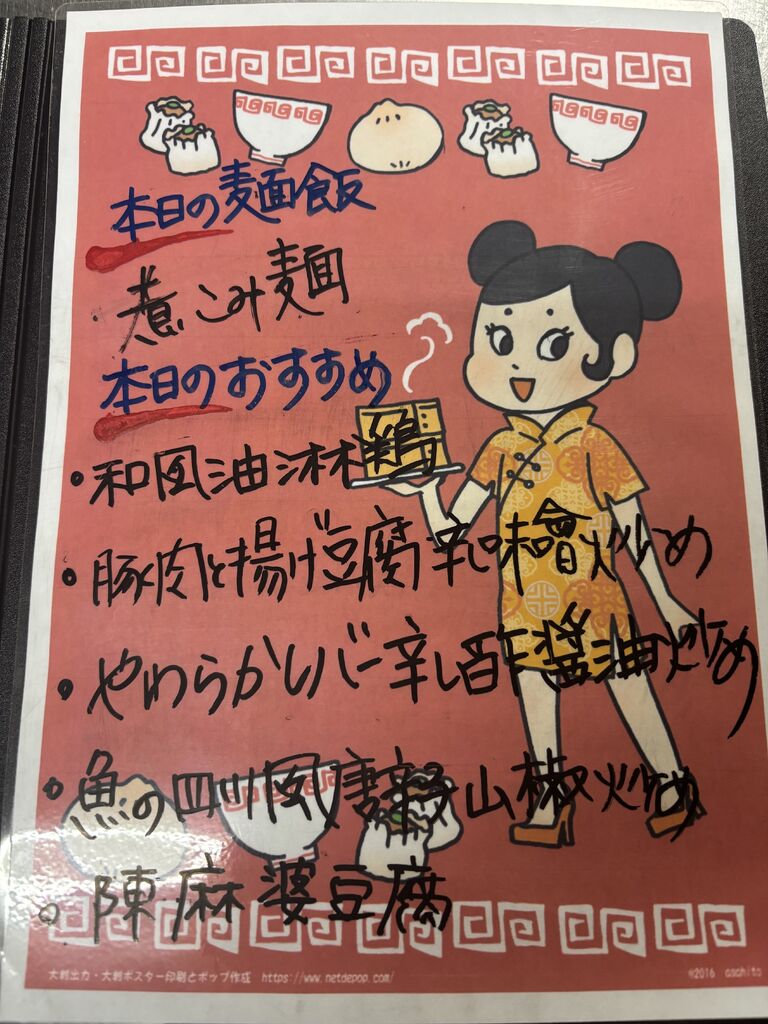 本日の麺飯
・煮こみ麺
本日のおすすめ
・和風油淋鶏
・豚肉と揚げ豆腐辛味噌炒め
・やわらかレバー辛し酢醤油炒め
・魚の四川風唐辛子山椒炒め
・陳麻婆豆腐
大判出力・大判ポスター印刷とポップ作成 https://www.netdepop.com/
©2016 asahito